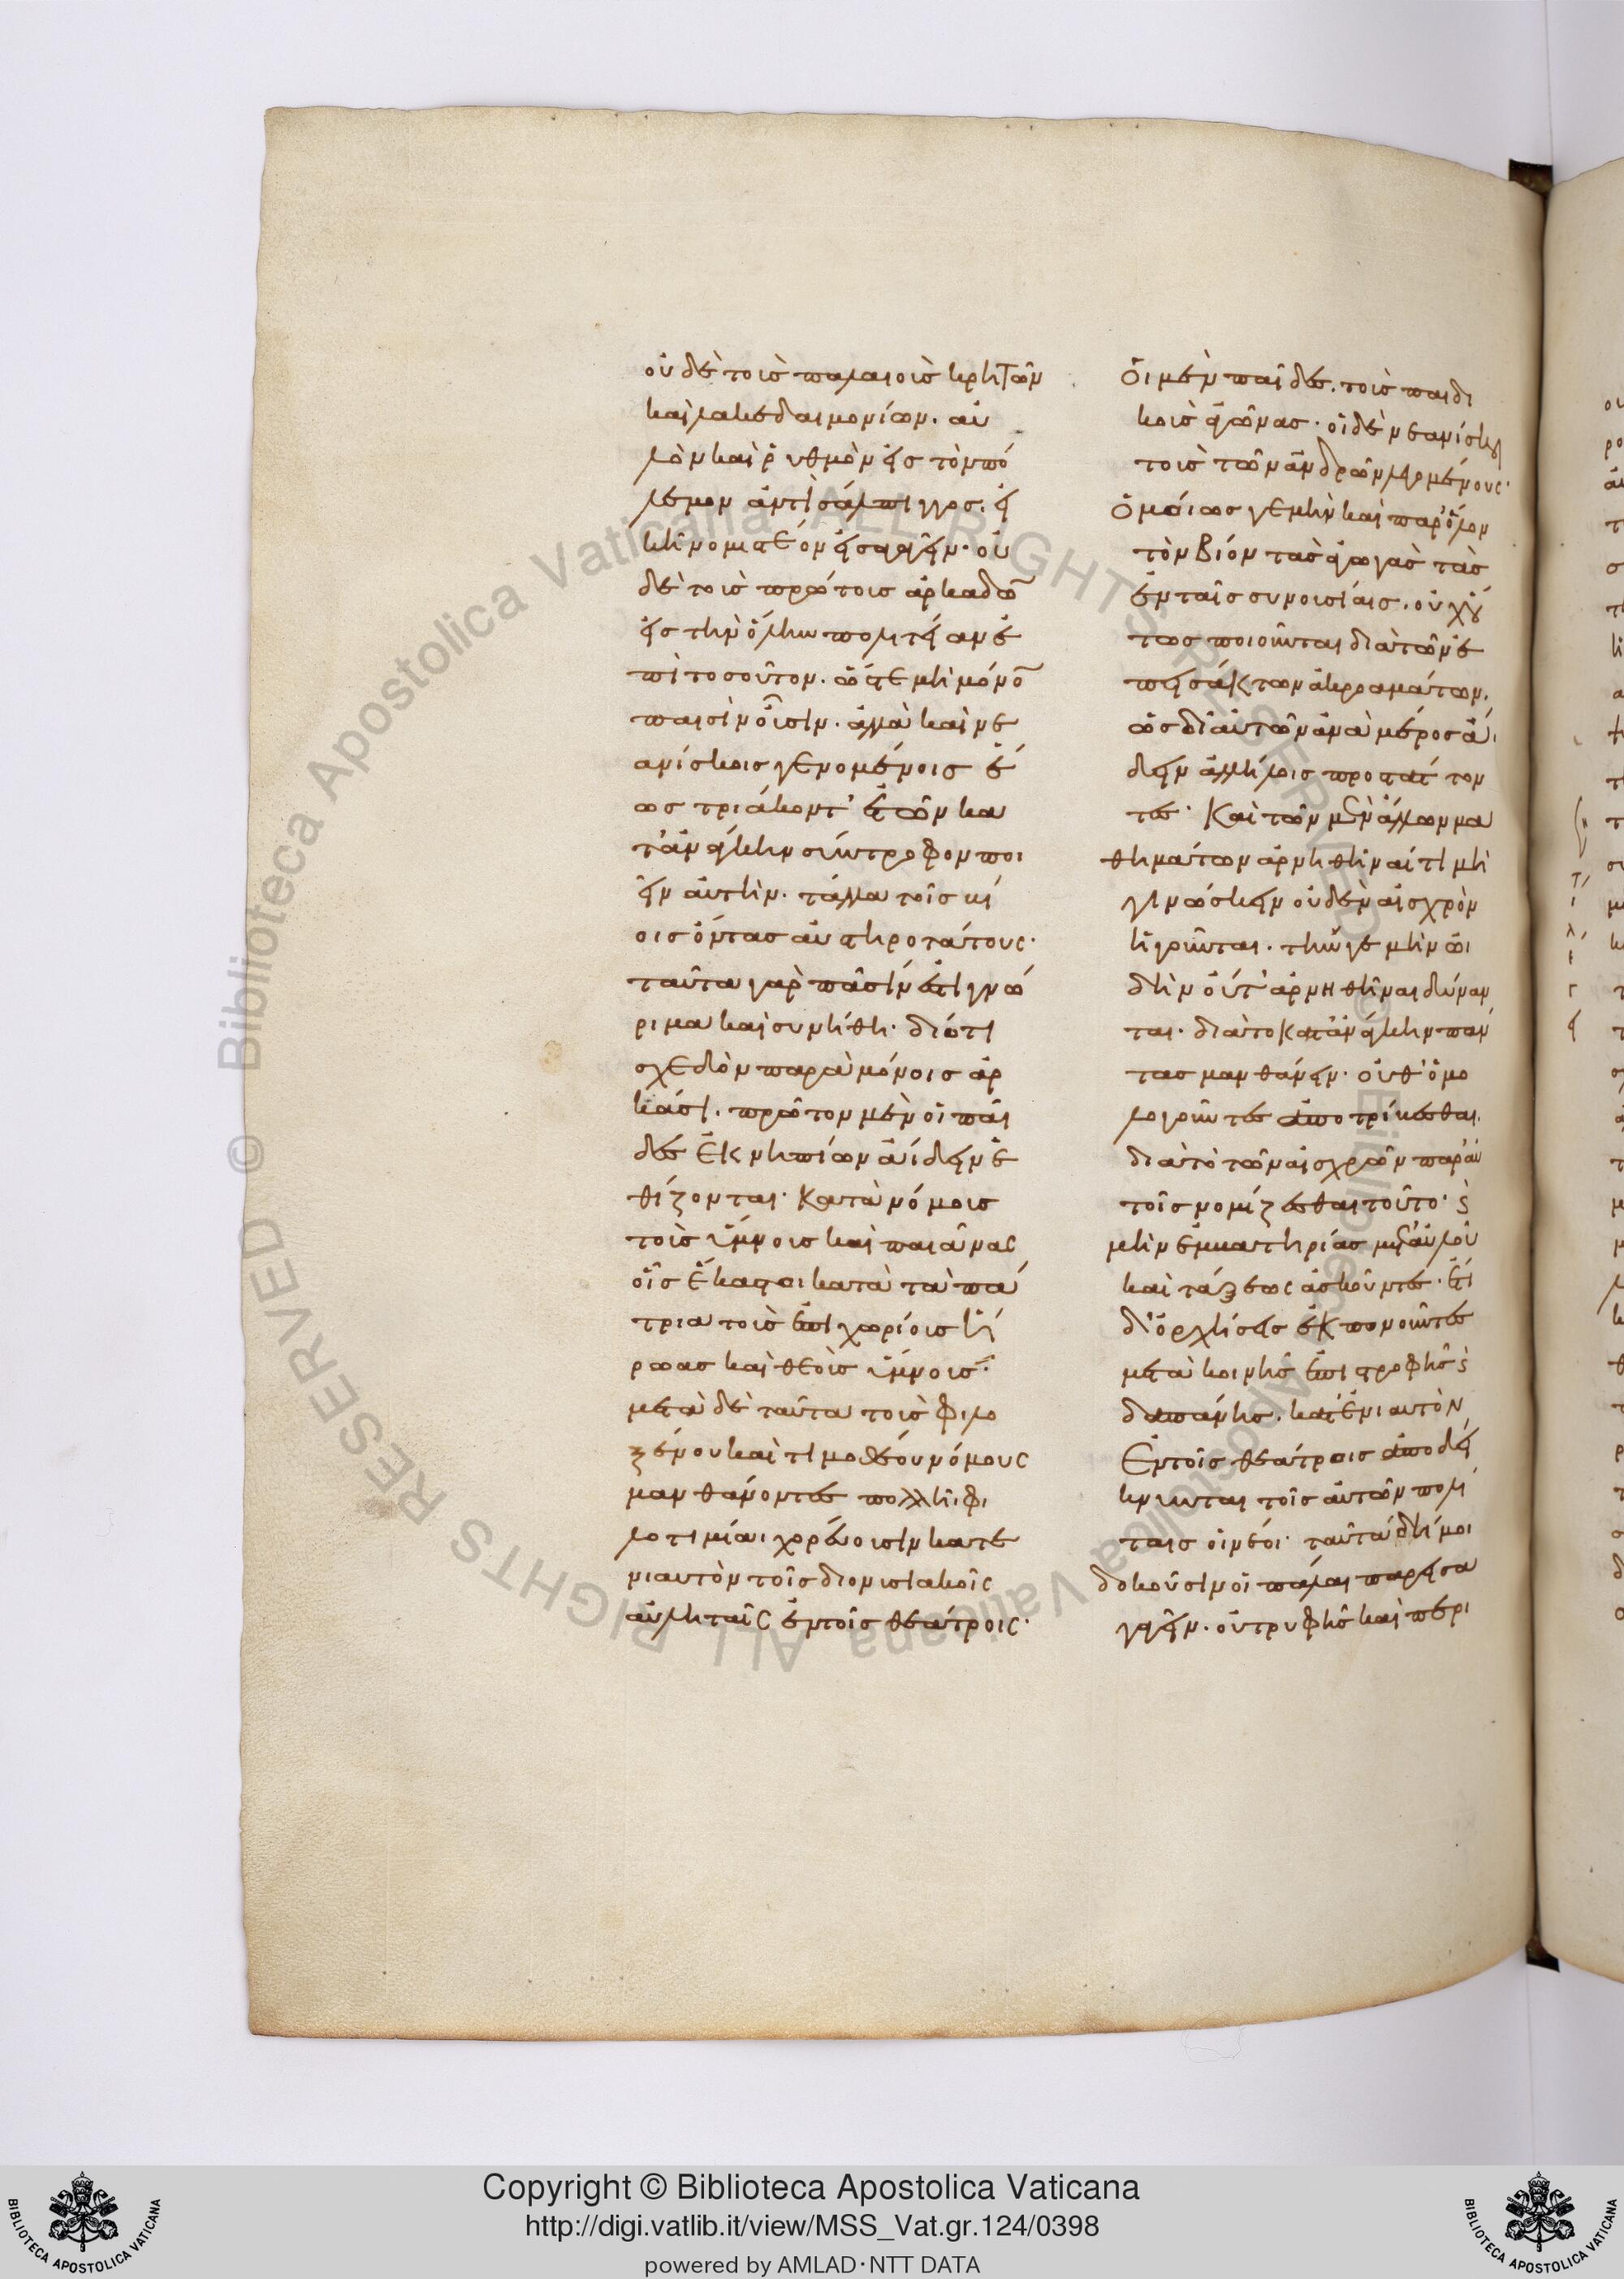 οὐδὲ τοὺς παλαιοὺς κρητῶν
καὶ λακεδαιμονίων. αὐ
λὸν καὶ ῥυθμὸν εἰς τὸν πό
λεμον ἀντὶ σάλπιγγος. εἰ
κῆ νομιστέον εἰσαγαγεῖν· οὐ
δὲ τοὺς πρώτους ἀρκαδω̅
εἰς τὴν ὅλην πολιτείαν ἐ
πὶ τοσοῦτον. ὥστε μὴ μόνο̅
παισὶν οὖσιν. ἀλλὰ καὶ νε
ανίσκοις γενομένοις ἕ
ως τριάκοντ' ἐτῶν κα
τ' ἀνάγκην σύντροφον ποι
εῖν αὐτήν. τἄλλα τοῖς βί
οις ὄντας αὐστηροτάτους·
ταῦτα γὰρ πᾶσίν ἐστι γνώ
ριμα καὶ συνήθη· διότι
σχεδὸν παρὰ μόνοις ἀρ
κάσι. πρῶτον μὲν οἱ παῖ
δες ἐκ νηπίων ἀΐδειν ἐ
θίζονται· κατὰ νόμους
τοὺς ὕμνους καὶ παιᾶνας
οἷς ἕκαστοι κατὰ τὰ πά
τρια τοὺς ἐπιχωρίους ἥ
ρωας καὶ θεοὺς ὑμνοῦσι·
μετὰ δὲ ταῦτα τοὺς φιλο
ξένου καὶ τιμοθέου νόμους
μανθάνοντες πολλῆι φι
λοτιμίαι χορεύουσιν κατ' ἐ
νιαυτὸν τοῖς διονυσιακοῖς
αὐληταῖς ἐν τοῖς θεάτροις·
Οἱ μὲν παῖδες. τοὺς παιδι
κοὺς ἀγῶνας· οἱ δὲ νεανίσκοι
τοὺς τῶν ἀνδρῶν λεγομένους·
Ὁμοίως γε μὴν καὶ παρ' ὅλον
τὸν βίον τὰς ἀγωγὰς τὰς
ἐν ταῖς συνουσίαις. οὐχ οὕ
τως ποιοῦνται διὰ τῶν ἐ
πεισάκτων ἀκροαμάτων.
ὡς δι' αὑτῶν ἀνὰ μέρος ἀΐ
δειν ἀλλήλοις προστάττον
τες· Καὶ τῶν μὲν ἄλλων μα
θημάτων ἀρνηθῆναί τι μὴ
γινώσκειν οὐδὲν αἰσχρὸν
ἡγοῦνται. τήν γε μὴν ὠι
δὴν οὔτ' ἀρνηθῆναι δύναν
ται· διὰ τὸ κατ' ἀνάγκην πάν
τας μανθάνειν· οὔθ' ὁμο
λογοῦντες ἀποτρίβεσθαι.
διὰ τὸ τῶν αἰσχρῶν παρ' αὐ
τοῖς νομίζεσθαι τοῦτο· καὶ
μὴν ἐμβατηρίας μετ' αὐλοῦ
καὶ τάξεως ἀσκοῦντες. ἔτι
δ' ὀρχήσεις ἐκπονοῦντες
μετὰ κοινῆς ἐπιστροφῆς καὶ
δαπάνης. κατ' ἐνιαυτὸν
Ἐν τοῖς θεάτροις ἀποδεί
κνυνται τοῖς αὑτῶν πολί
ταις οἱ νέοι· ταῦτά δή μοι
δοκοῦσιν οἱ πάλαι παρεισα
γαγεῖν. οὐ τρυφῆς καὶ περι